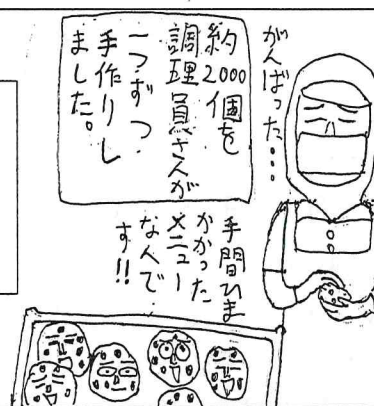 がんばった…
約2000個を
調理員さんが
一つずつ
手作りし
ました。
手間ひま
かかった
メニュー
なんで
す!!